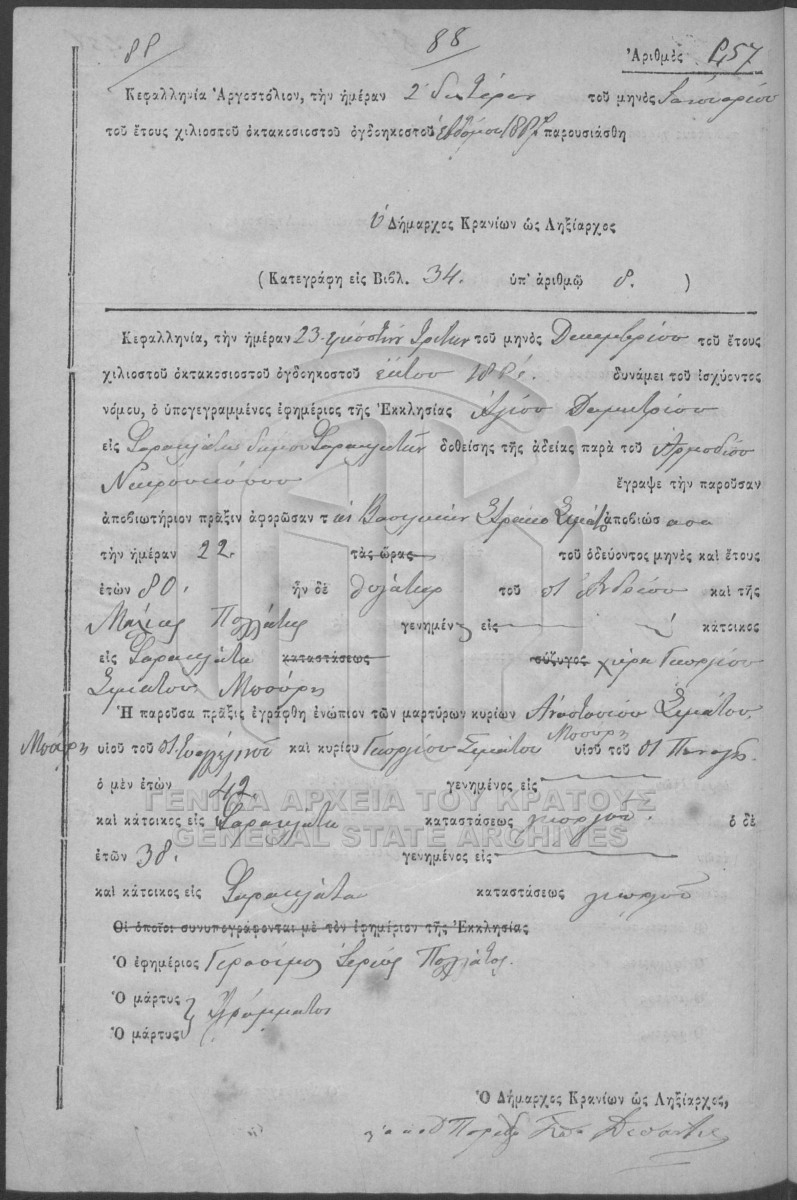 88 88 Ἀριθμὸς
Κεφαλληνία Ἀργοστόλιον, τὴν ἡμέραν 2 δευτέραν τοῦ μηνὸς Ἰανουαρίου
τοῦ ἔτους χιλιοστοῦ ὀκτακοσιοστοῦ ὀγδοηκοστοῦ ἑβδόμου 1887 παρουσιάσθη
ὁ Δήμαρχος Κρανίων ὡς Ληξίαρχος
( Κατεγράφη εἰς Βιβλ. 34. ὑπ' ἀριθμῷ 8. )
Κεφαλληνία, τὴν ἡμέραν 23 εἰκοστὴν τρίτην τοῦ μηνὸς Δεκεμβρίου τοῦ ἔτους
χιλιοστοῦ ὀκτακοσιοστοῦ ὀγδοηκοστοῦ ἕκτου 1886. δυνάμει τοῦ ἰσχύοντος
νόμου, ὁ ὑπογεγραμμένος ἐφημέριος τῆς Ἐκκλησίας Ἁγίου Δημητρίου
εἰς Φαρακλάτα δήμου δοθείσης τῆς ἀδείας παρὰ τοῦ Ἁρμοδίου
Νεκροσκόπου ἔγραψε τὴν παροῦσαν
ἀποβιωτήριον πρᾶξιν ἀφορῶσαν τὴν Βασιλικὴν Σιμάτου ἀποβιώσασα
τὴν ἡμέραν 22. τὰς ὥρας τοῦ ὁδεύοντος μηνὸς καὶ ἔτους
ἐτῶν 80. ἦν δὲ θυγάτηρ τοῦ Ἀνδρέου καὶ τῆς
Μαρίας Πολλάτης γενημένη εἰς κάτοικος
εἰς Φαρακλάτα καταστάσεως σύζυγος χήρα Γεωργίου
Σιμάτου Μπούρη
Ἡ παροῦσα πρᾶξις ἐγράφθη ἐνώπιον τῶν μαρτύρων κυρίων Ἀναστασίου Σιμάτου
Μπούρη υἱοῦ τοῦ Εὐαγγελινοῦ καὶ κυρίου Γεωργίου Σιμάτου Μπούρη υἱοῦ τοῦ
ὁ μὲν ἐτῶν 42 γενημένος εἰς
καὶ κάτοικος εἰς Φαρακλάτα καταστάσεως γεωργοῦ. ὁ δὲ
ἐτῶν 38. γενημένος εἰς
καὶ κάτοικος εἰς Φαρακλάτα καταστάσεως γεωργοῦ
Οἱ ὁποῖοι συνυπογράφονται μὲ τὸν ἐφημέριον τῆς Ἐκκλησίας
Ὁ ἐφημέριος Γεράσιμος Ἱερεὺς Πολλάτος.
Ὁ μάρτυς
Ὁ μάρτυς } Ἀγράμματοι
Ὁ Δήμαρχος Κρανίων ὡς Ληξίαρχος,
ΓΕΝΙΚΑ ΑΡΧΕΙΑ ΤΟΥ ΚΡΑΤΟΥΣ
GENERAL STATE ARCHIVES